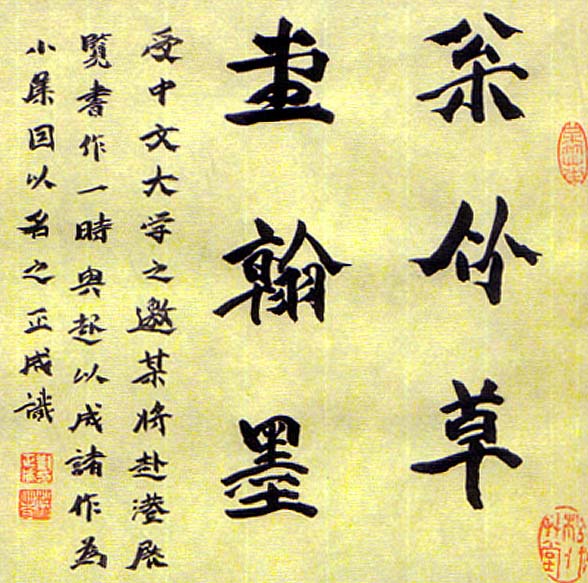 枀竹草
堂翰墨
受中文大学之邀某将赴港展
覽書作一時興起以成諸作為
小集因以名之正成識